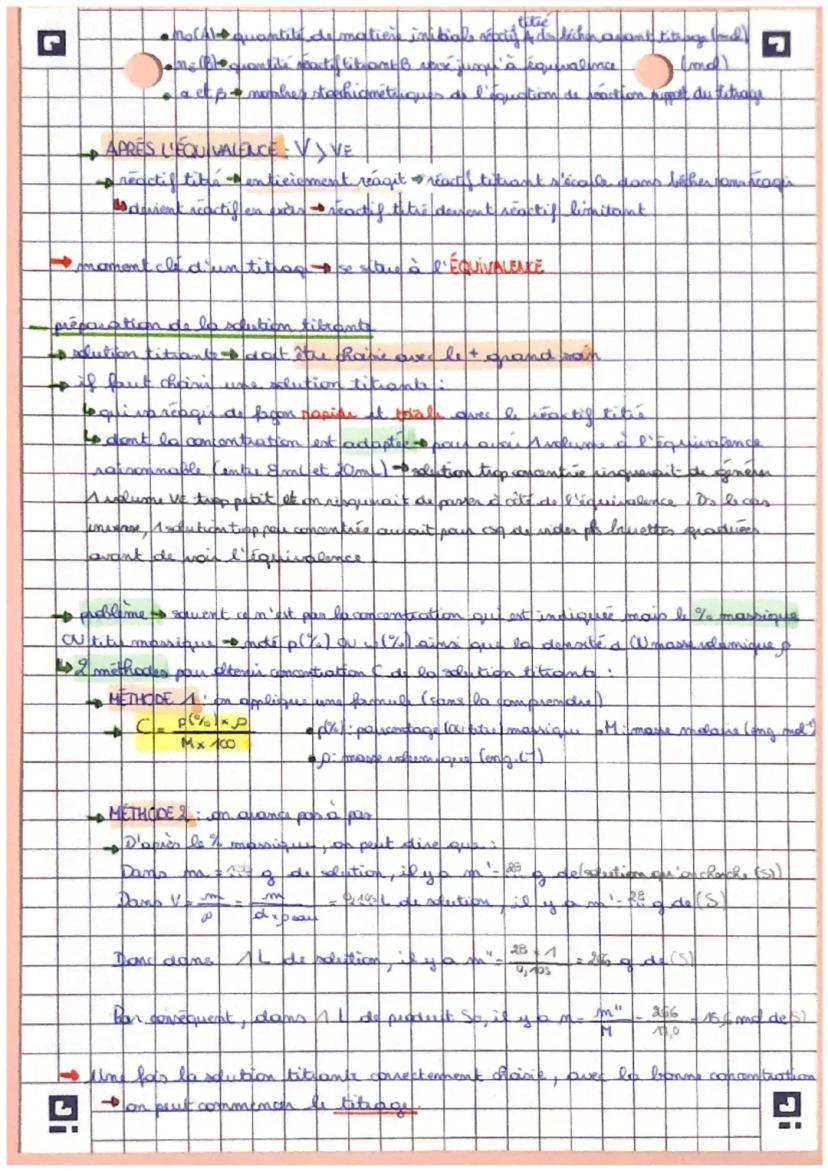 titré
• n₀(A) → quantité de matière initiale réactif A ds bécher avant titrage (mol)
• nE(B) → quantité réactif titrant B versé jusqu'à équivalence (mol)
• α et β → nombres stoechiométriques de l'équation de réaction support du titrage
→ APRÈS L'ÉQUIVALENCE : V > VE
→ réactif titré → entièrement réagit → réactif titrant s'écoule dans bécher sans réagir
↳ devient réactif en excès → réactif titré devient réactif limitant
→ moment clé d'un titrage → se situe à l'ÉQUIVALENCE
– préparation de la solution titrante
→ solution titrante → doit être choisie avec le + grand soin
→ il faut choisir une solution titrante :
↳ qui va réagir de façon rapide et totale avec le réactif titré
↳ dont la concentration est adaptée → pour avoir 1 volume à l'équivalence
raisonnable (entre 8ml et 20ml) → solution trop concentrée risquerait de générer
1 volume VE trop petit et on risquerait de passer à côté de l'équivalence. Ds le cas
inverse, 1 solution trop peu concentrée aurait pour csq de vider pls burettes graduées
avant de voir l'équivalence.
→ problème → souvent ce n'est pas la concentration qui est indiquée mais le % massique
OU titre massique → noté p(%) OU w(%) ainsi que la densité d OU masse volumique ρ
↳ 2 méthodes pour obtenir concentration C de la solution titrante :
→ MÉTHODE 1 : on applique une formule (sans la comprendre)
→ C = p(%) × ρ / M × 100 • p(%) : pourcentage (OU titre) massique • M : masse molaire (en g.mol⁻¹)
• ρ : masse volumique (en g.L⁻¹)
→ MÉTHODE 2 : on avance pas à pas
→ D'après le % massique, on peut dire que :
Dans m = g de solution, il y a m' = 28 g de (solution qu'on cherche (S))
Dans V = m / ρ = m / d × ρeau = 0,105 L de solution, il y a m' = 28 g de (S)
Donc dans 1 L de solution, il y a m" = 28 × 1 / 0,105 = 266 g de (S)
Par conséquent, dans 1 L de produit S₀, il y a n = m" / M = 266 / 17,0 = 15,6 mol de (S)
→ Une fois la solution titrante correctement choisie, avec la bonne concentration
→ on peut commencer le titrage.